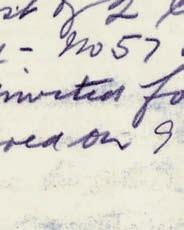 of 2
- No 57
invited fo
ved on 9